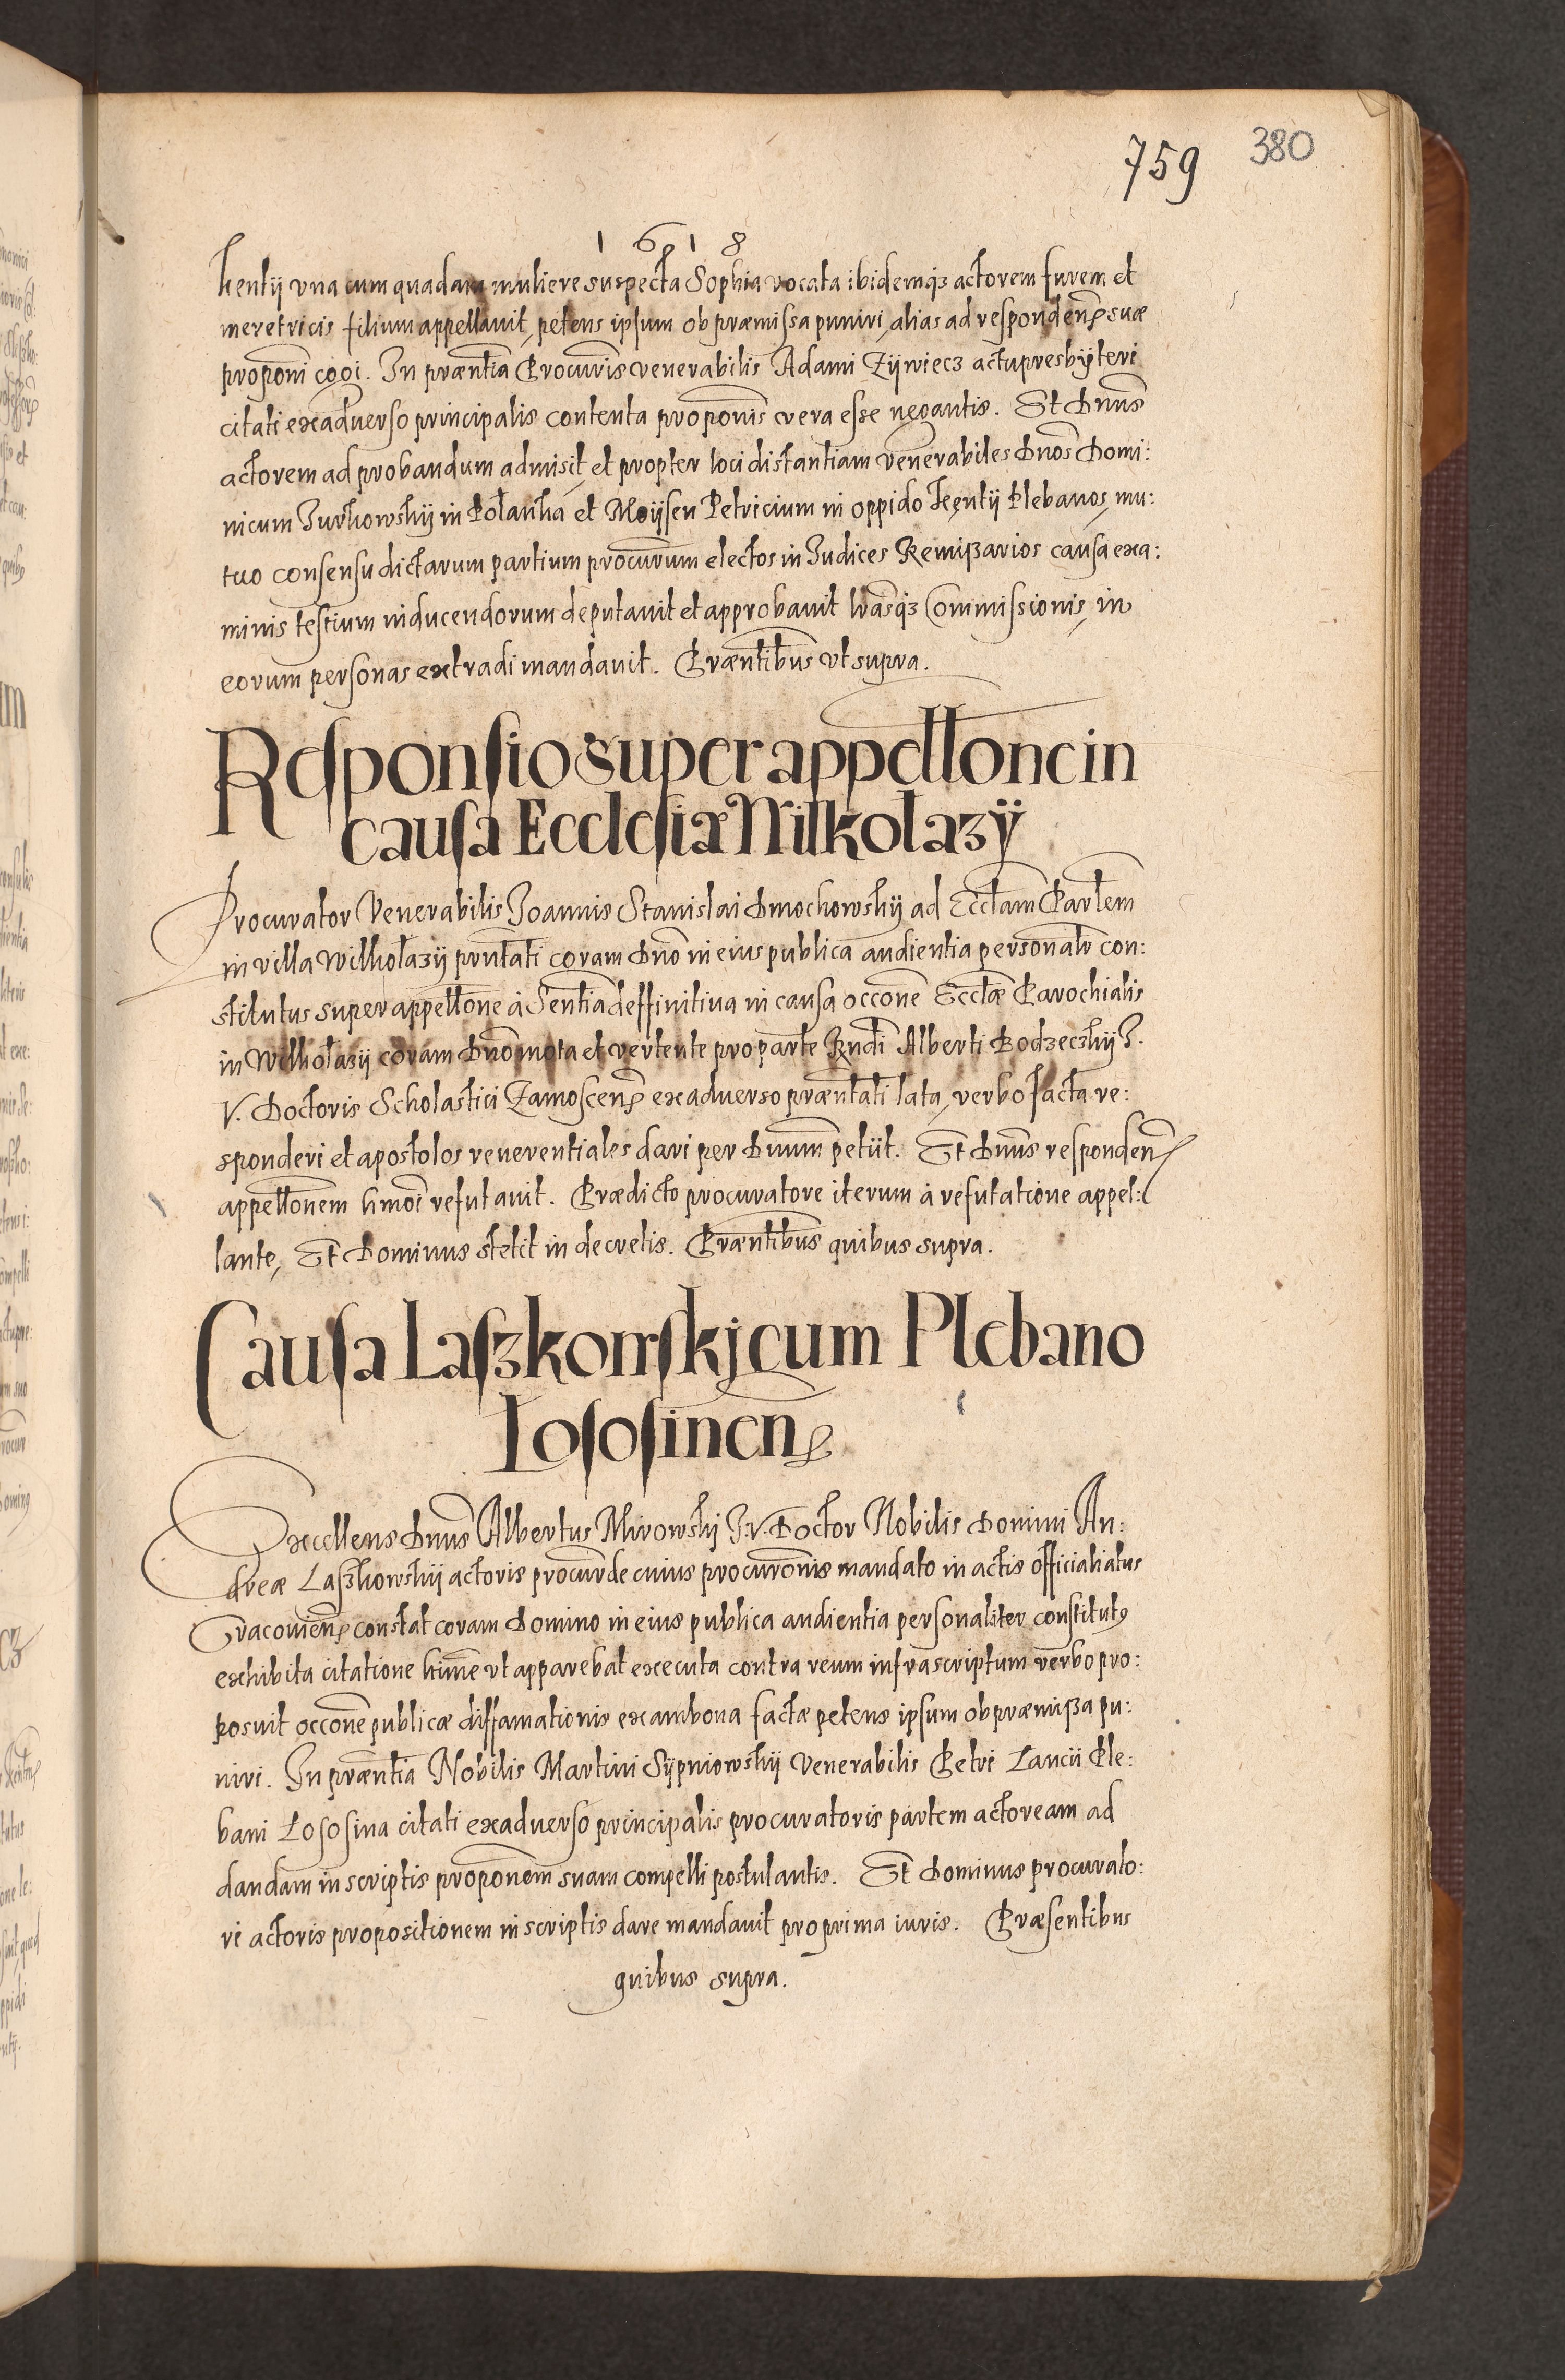 759 380
1618
kentÿ vna cum quadam muliere suspecta Sophia vocata ibidemqȝ actorem furem et
meretricis filium appellauit, petens ipsum ob præmissa puniri, alias ad responden̄ suæ
propoñi cogi. In præn̄tia Procur̄is venerabilis Adami Zÿwiecz actu presbÿteri
citati ex aduerso principalis contenta propōnis vera esse negantis. Et Dn̄us
actorem ad probandum admisit, et propter loci distantiam venerabiles Dn̄os Domi:
nicum Jurkowskÿ in Polanka et Moÿsen Petricium in oppido Kęntÿ Plebanos, mu:
tuo consensu dictarum partium procur̄um electos in Judices Remißarios causa exa:
minis testium inducendorum deputauit et approbauit lr̄asqȝ Commissionis, in
eorum personas extradi mandauit. Præn̄tibus vt supra.
Responsio super appellōne in
causa Ecclesiæ Wilkołazÿ
Procurator Venerabilis Joannis Stanislai Dmochowskÿ ad Eccl̄am Par̄lem
in villa Wilkołazÿ prn̄tati coram Dn̄o in eius publica audientia personalr̄ con:
stitutus super appellōne à Sen̄tia deffinitiua in causa occōne Eccl̄æ Parochialis
in Wilkołazÿ coram Dn̄o mota et vertente pro parte Rn̄di Alberti Bodzeczkÿ J.
V. Doctoris Scholastici Zamoscen̄ ex aduerso præn̄tati lata, verbo facta re:
sponderi et apostolos reuerentiales dari per Dn̄um petiit. Et Dn̄us responden̄
appellōnem hm̄oi refutauit. Prædicto procuratore iterum à refutatione appel:
lante, Et Dominus stetit in decretis. Præn̄tibus quibus supra.
Causa Laszkowskj cum Plebano
Łososinen̄
Excellens Dn̄us Albertus Mirowskj J.V. Doctor Nobilis Domini An:
dreæ Laszkowskÿ actoris procur̄ de cuius procurōnis mandato in actis officialiatus
Cracouien̄ constat coram Domino in eius publica audientia personaliter constitutꝰ
exhibita citatione hīne vt apparebat executa contra reum infrascriptum verbo pro:
posuit occōne publicæ diffamationis ex ambona factæ petens ipsum ob præmißa pu:
niri. In præn̄tia Nobilis Martini Sÿpniowskÿ Venerabilis Petri Lancii Ple:
bani Łososina citati ex aduerso principalis procuratoris partem actoream ad
dandam in scriptis propōnem suam compelli postulantis. Et Dominus procurato:
ri actoris propositionem in scriptis dare mandauit pro prima iuris. Præsentibus
quibus supra.